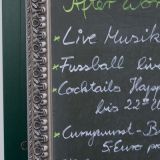 After Wor
*Live Musik
*Fussball live
*Cocktails Happy
bis 22
*Currywurst-B
5,-Euro p